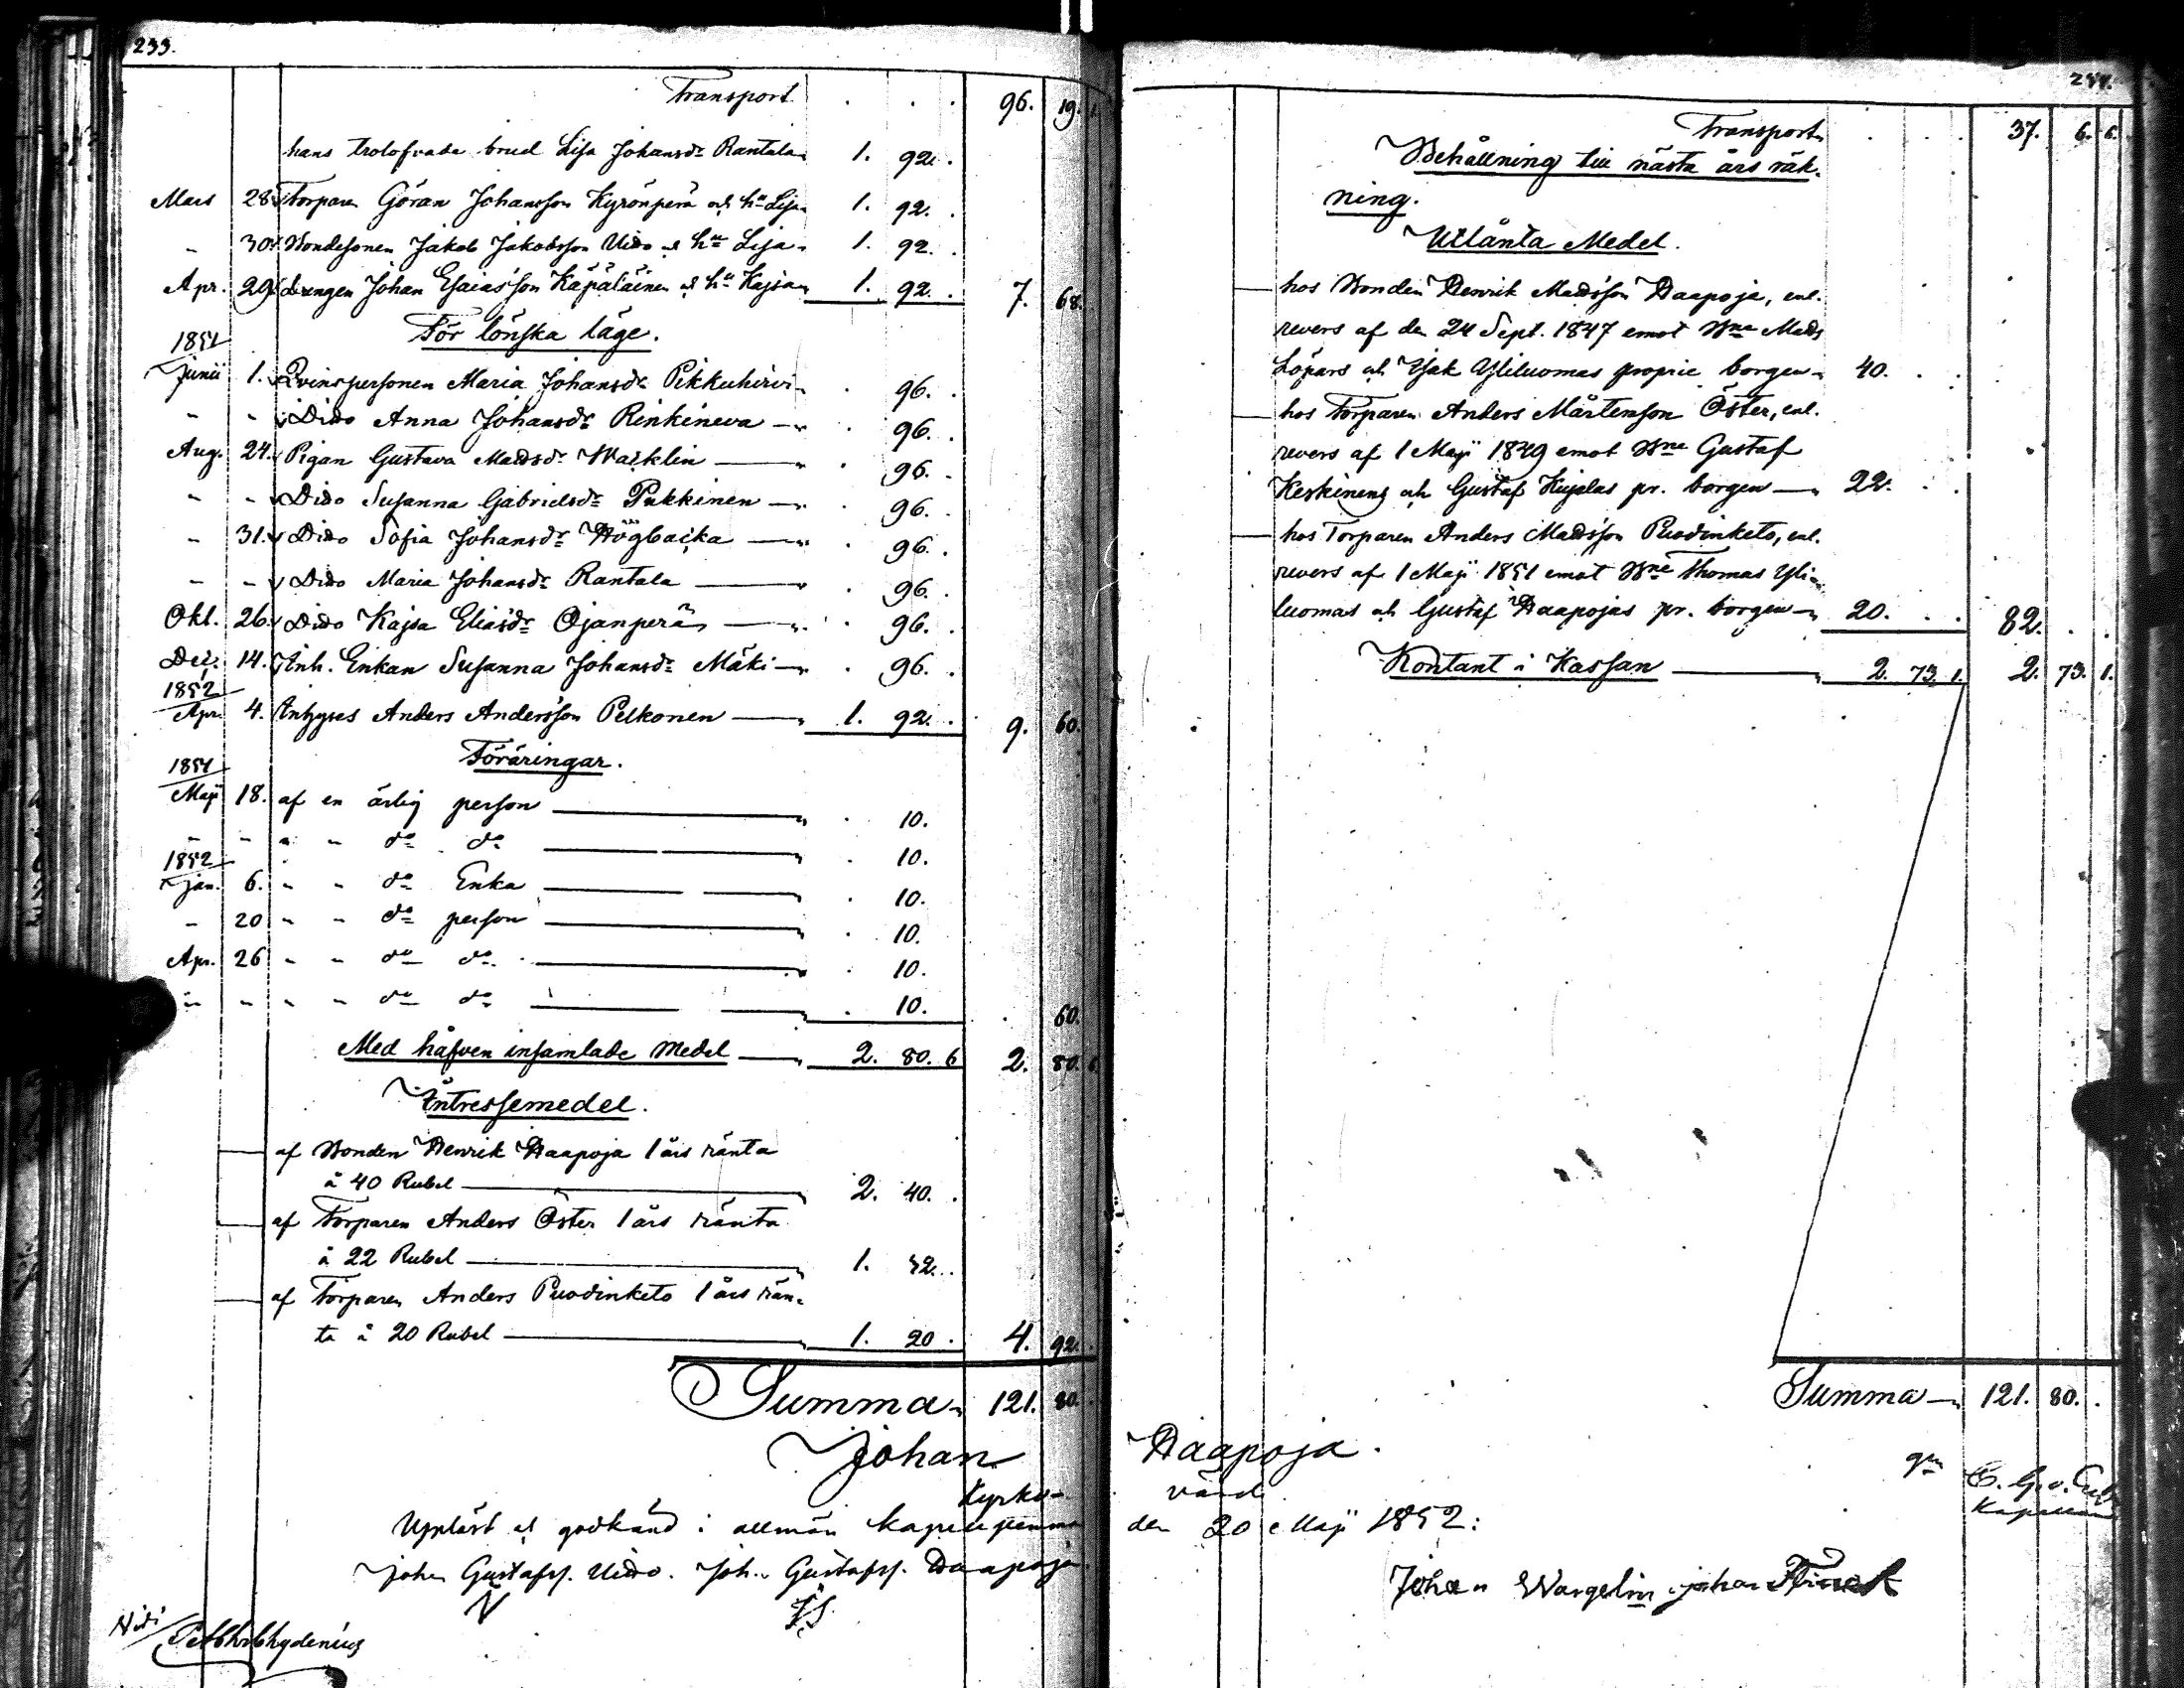 233.
Transport . . . 96. 19. 1.
hans trolofvade brud Lisa Johansdr Rantala 1. 92. .
Mars 28. Torparen Göran Johansson Kyrönperä och hu Lisa 1. 92. .
- 30. Bondesonen Jakob Jakobsson Uido och hu Lisa 1. 92. .
Apr. 29. Drengen Johan Esaiasson Käpäläinen och hu Kajsa 1. 92. . 7. 68.
För lönska läge.
1851
Junii 1. Qvinspersonen Maria Johansdr Pikkuhirvi . 96. .
- - Dido Anna Johansdr Rinkineva — . 96. .
Aug. 24. Pigan Gustava Madsdr Wacklin — . 96. .
- - Dido Susanna Gabrielsdr Pukkinen — . 96. .
- 31. Dido Sofia Johansdr Högbacka — . 96. .
- - Dido Maria Johansdr Rantala — . 96. .
Okt. 26. Dido Kajsa Eliasdr Ojanperä — . 96. .
Dec. 14. Inh. Enkan Susanna Johansdr Mäki — . 96. .
1852
Apr. 4. Inhyses Anders Andersson Pelkonen — 1. 92. . 9. 60.
Föräringar.
1851
Maji 18. af en ärlig person — . 10.
- - " " do do — . 10.
1852
Jan. 6. " " do Enka — . 10.
- 20 " " do person — . 10.
Apr. 26 " " do do — . 10.
" - " " do do — . 10. . 60.
Med håfven insamlade Medel — 2. 80. 6 2. 80. 6.
Intressemedel.
— af Bonden Henrik Haapoja 1 års ränta
à 40 Rubel — 2. 40. .
— af Torparen Anders Öster 1 års ränta
à 22 Rubel — 1. 32. .
— af Torparen Anders Puodinketo 1 års rän-
ta à 20 Rubel — 1. 20 . 4. 92. .
Summa 121. 80. .
Johan
Kyrko-
Uppläst och godkänd i allmän
Johan Gustafss. Uido. Joh. Gustafss. Haapoja.
Vidi
234.
Transport . . . 37. 6. 6.
Behållning till nästa års räk-
ning.
Utlånta Medel.
— hos Bonden Henrik Madsson Haapoja, enl.
revers af den 24 Sept. 1847 emot Bne Mads
Löpars och Isak Yliluomas proprie borgen 40. . .
— hos Torparen Anders Mårtensson Öster, enl.
revers af 1 Maji 1849 emot Bne Gustaf
Keskinens och Gustaf Kujalas pr. borgen — 22. . .
— hos Torparen Anders Madsson Puodinketo, enl.
revers af 1 Maji 1851 emot Bne Thomas Yli-
luomas och Gustaf Haapojas pr. borgen 20. . . 82. . .
Kontant i Kassan — 2. 73. 1. 2. 73. 1.
Summa — 121. 80. .
Haapoja.
värd
gm
den 20 Maji 1852:
Johan Wargelin